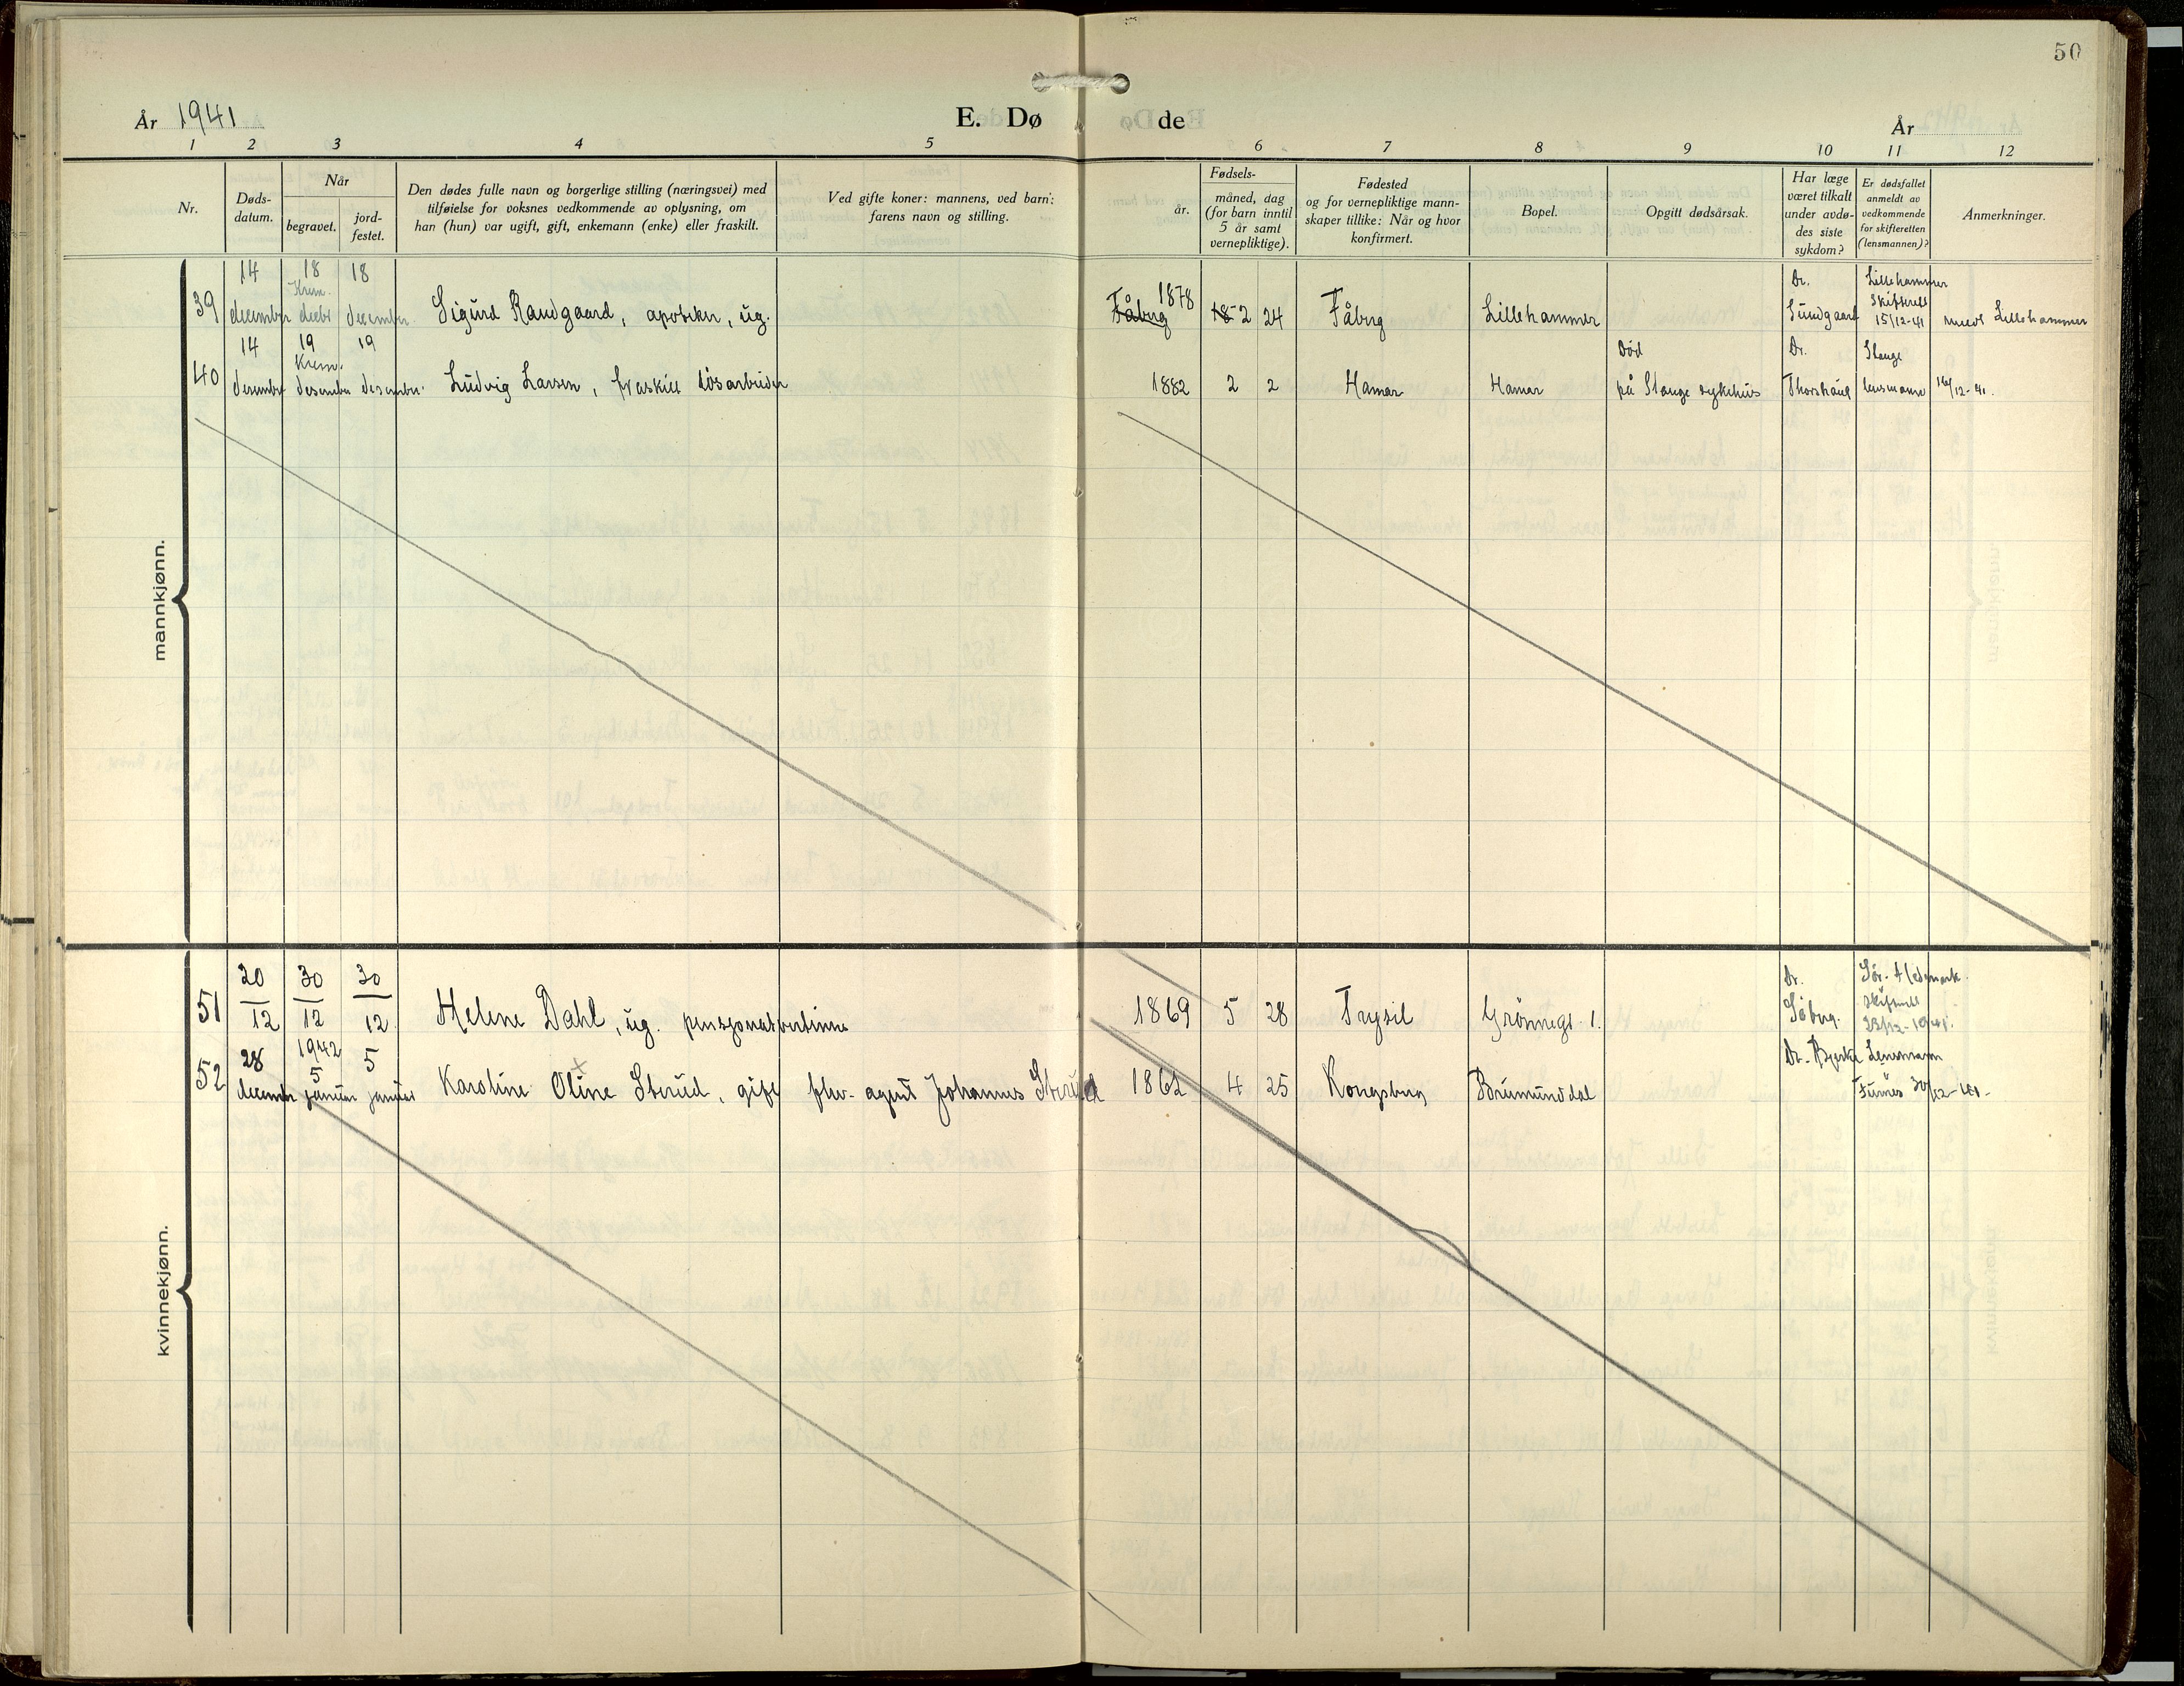 50
År 1941
E. Dø
de
År
1 2 3 4 5 6 7 8 9 10 11 12
Nr.
Døds-
datum.
Når
begravet.
jord-
festet.
Den dødes fulle navn og borgerlige stilling (næringsvei) med
tilføielse for voksnes vedkommende av oplysning, om
han (hun) var ugift, gift, enkemann (enke) eller fraskilt.
Ved gifte koner: mannens, ved barn:
farens navn og stilling.
Fødsels-
år.
måned, dag
(for barn inntil
5 år samt
vernepliktige).
Fødested
og for vernepliktige mann-
skaper tillike: Når og hvor
konfirmert.
Bopel.
Opgitt dødsårsak.
Har læge
været tilkalt
under avdø-
des siste
sykdom?
Er dødsfallet
anmeldt av
vedkommende
for skifteretten
(lensmannen)?
Anmerkninger.
mannkjønn.
14 18 18 Dr. Lillehammer
Krem. 1878 Skifterett
39 december decbr december Sigurd Randgaard, apoteker, ug. Fåberg 18 2 24 Fåberg Lillehammer Sundgaard 15/12-41 Lillehammer
14 19 19 Død Dr. Stange
Krem.
40 desember desember desember. Ludvig Larsen, fraskilt løsarbeider 1882 2 2 Hamar Hamar på Stange sykehus Thorshaug lensmann 16/12-41.
kvinnekjønn.
20 30 30 Dr. Sør-Hedmark
51 12 12 12 Helene Dahl, ug. pensjonatvertinne 1869 5 28 Trysil Grønnegt. 1. Søberg. skifterett
23/12-1941.
28 1942 5 Dr. Bjerke Lensmann
5
52 december januar januar Karoline Oline Sterud, gift fhv. agent Johannes Sterud 1862 4 25 Kongsberg Brumunddal Furnes 30/12-41.